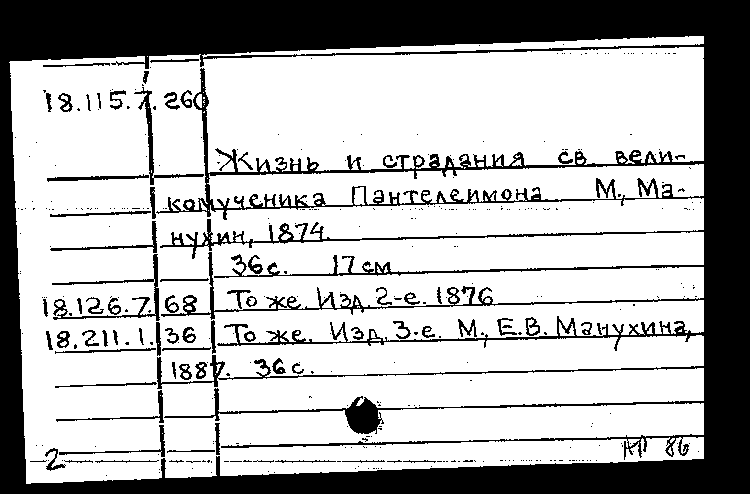 18.115.7.260
Жизнь и страдания св. вели-
комученика Пантелеимона М., Ма-
нухин, 1874.
36 с. 17 см.
18.126.7.68 То же. Изд. 2-е. 1876
18.211.1.36 То же. Изд. 3-е. М., Е.В. Манухина,
1887. 36 с.
2 АР 86